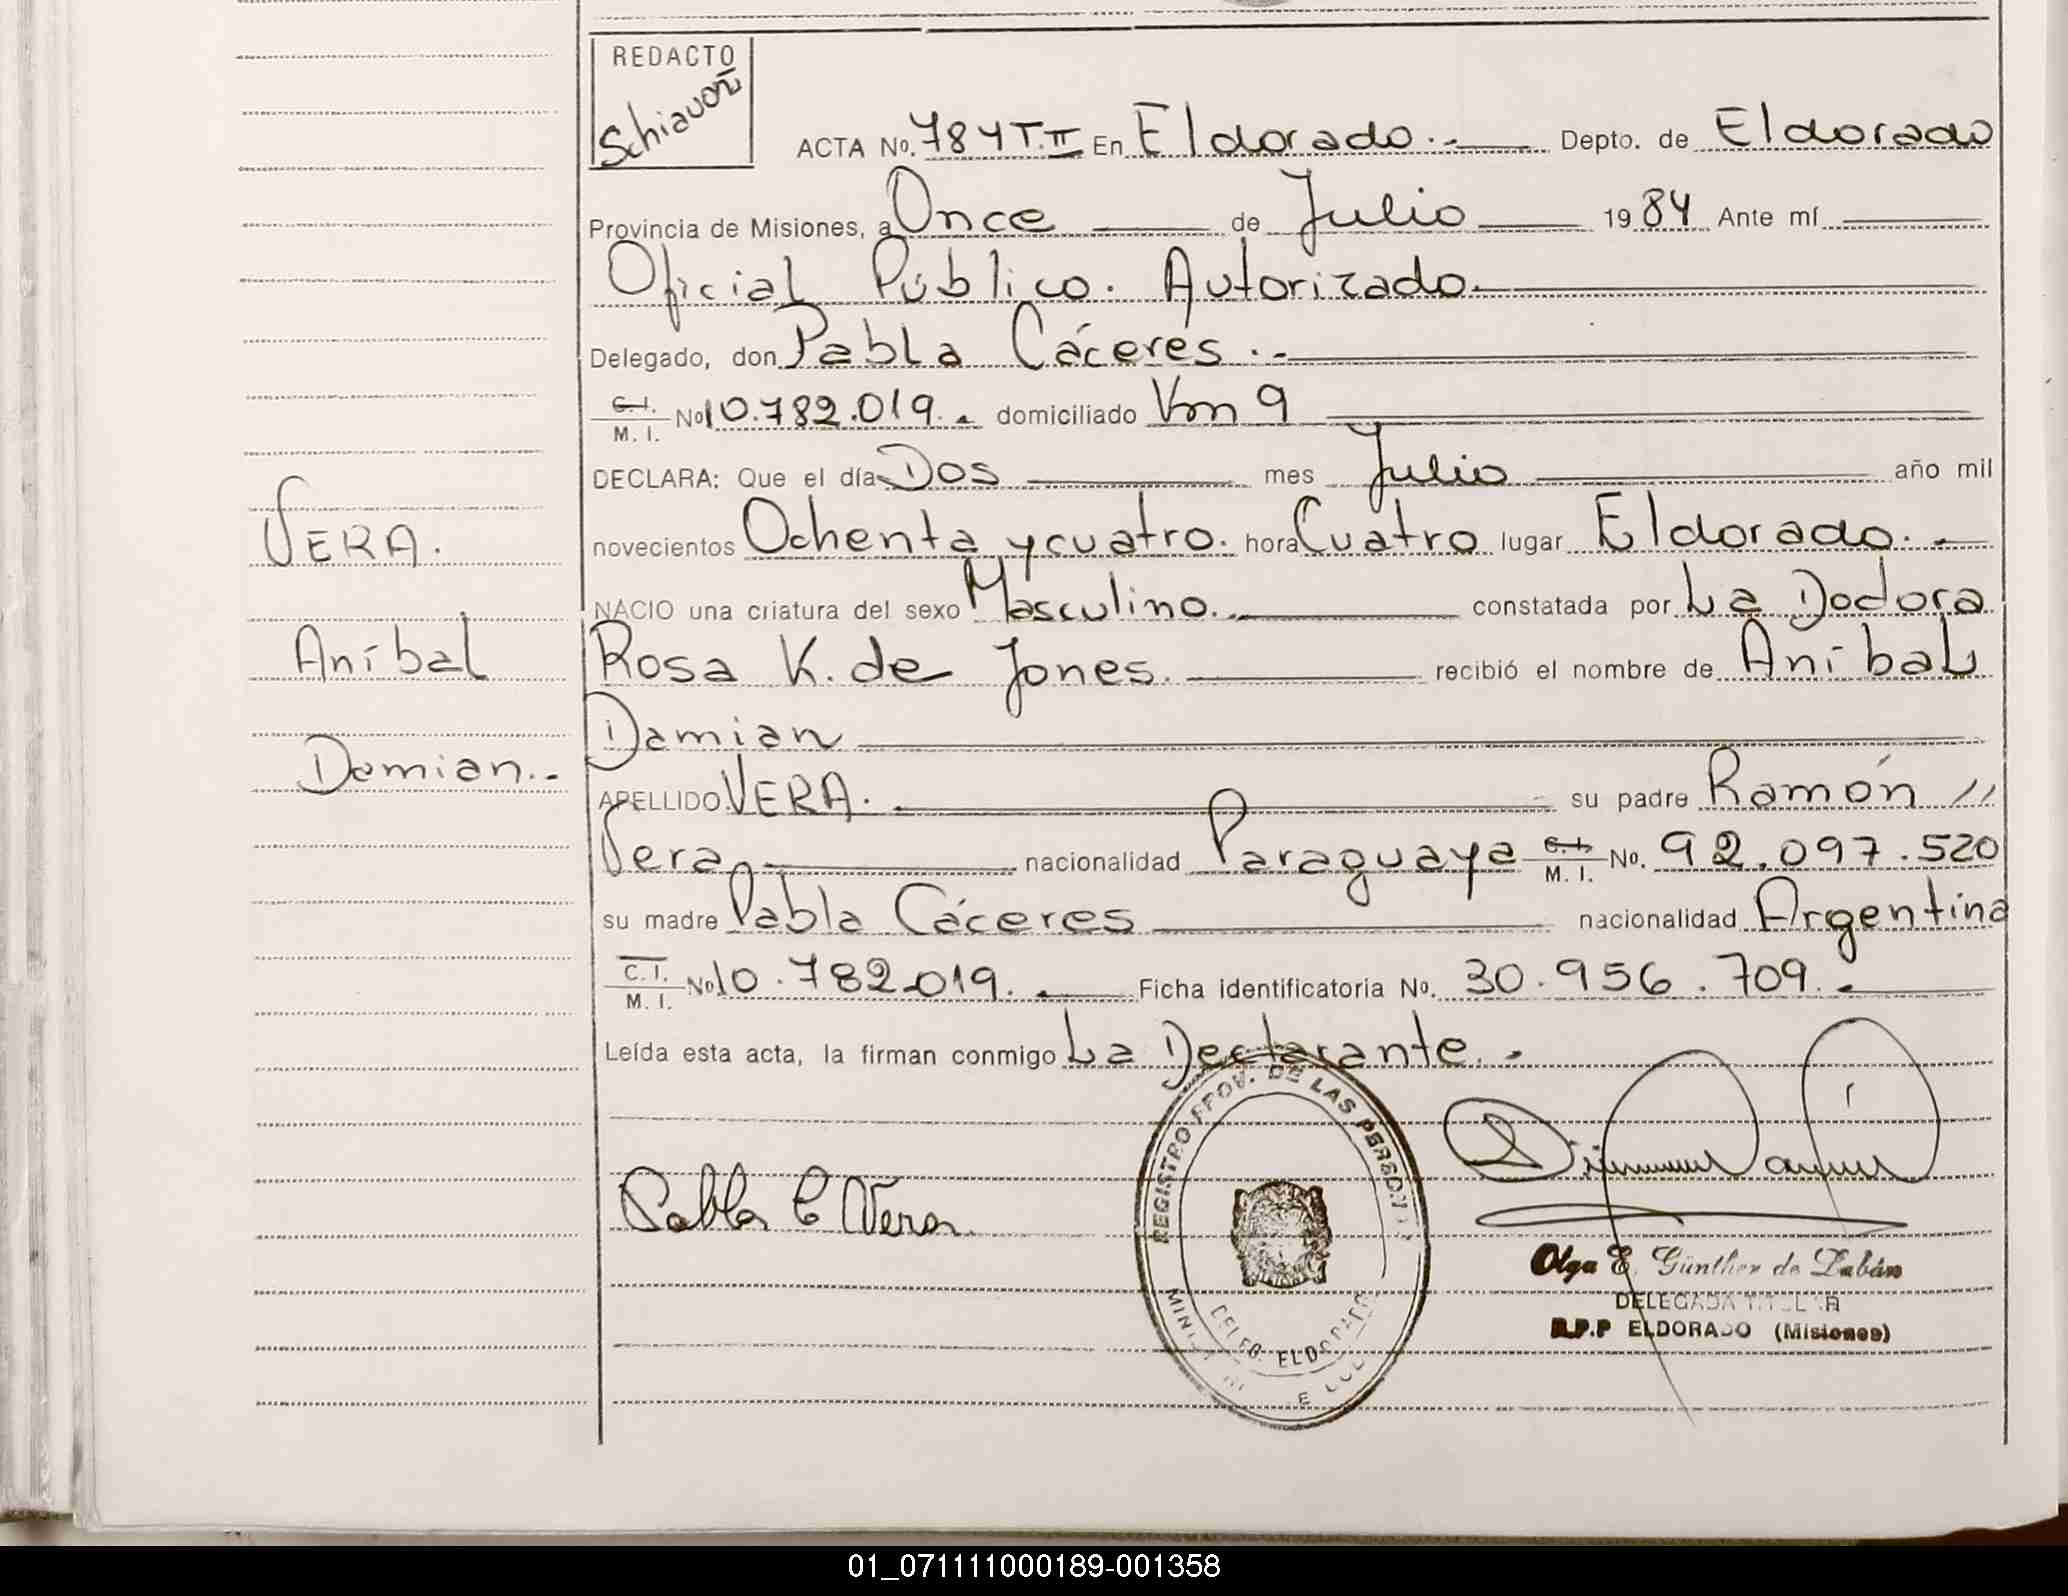 REDACTO
Schiavoni
ACTA No. 784 T.II En Eldorado.- Depto. de Eldorado
Provincia de Misiones, a Once de Julio 1984 Ante mí
Oficial Público. Autorizado.
Delegado, don Pabla Cáceres.-
C. I.
M. I. No 10.782.019.- domiciliado Km 9
DECLARA: Que el día Dos mes Julio año mil
novecientos Ochenta y cuatro. hora Cuatro lugar Eldorado.-
NACIO una criatura del sexo Masculino.- constatada por La Doctora
Rosa K. de Jones. recibió el nombre de Aníbal
Damian
APELLIDO VERA. su padre Ramón //
Vera nacionalidad Paraguaya C. I. M. I. No. 92.097.520
su madre Pabla Cáceres nacionalidad Argentina
C. I.
M. I. No 10.782.019.- Ficha identificatoria No. 30.956.709.-
Leída esta acta, la firman conmigo La Declarante.-
VERA.
Aníbal
Damian.-
Pabla C Vera
REGISTRO PROV. DE LAS PERSONAS
DELEG. ELDORADO
Olga E. Günther de Labán
DELEGADA TITULAR
R.P.P ELDORADO (Misiones)
01_071111000189-001358